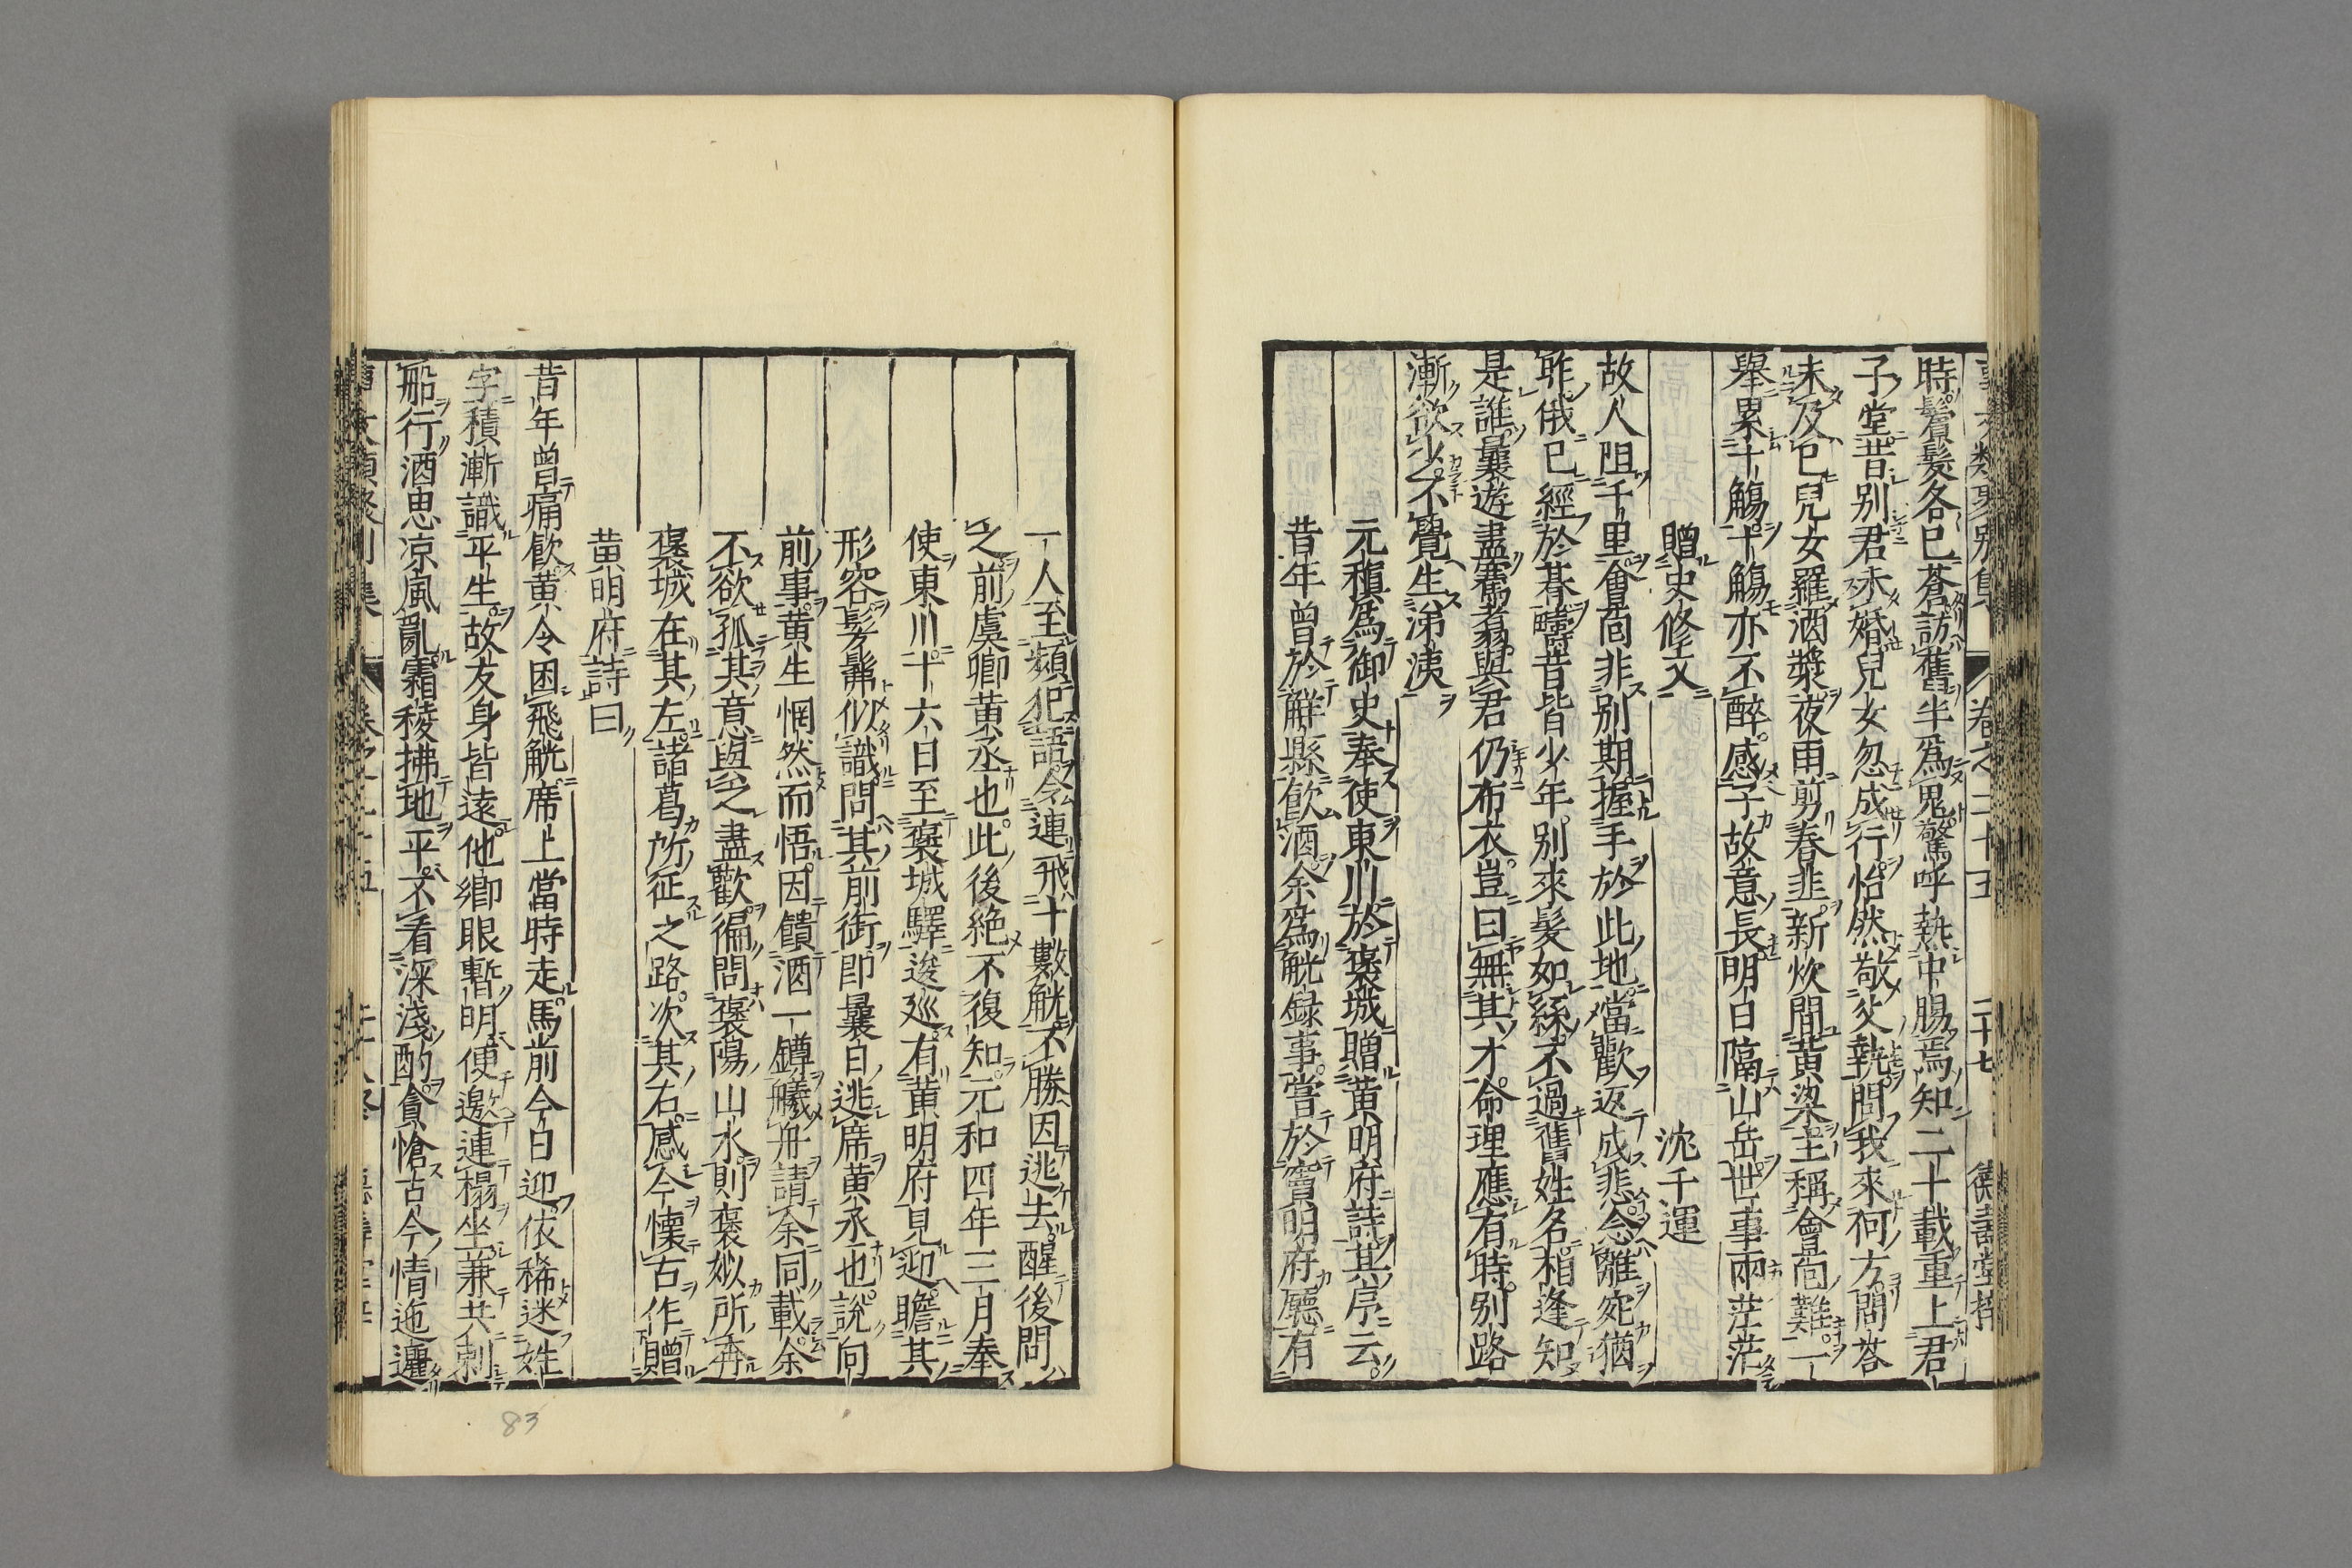 事文類聚別集 卷之二十五 二十七 德壽堂梓
時鬢髮各已蒼訪舊半爲鬼驚呼熱中腸焉知二十載重上君
子堂昔别君未婚兒女忽成行怡然敬父執問我來何方問荅
未及已兒女羅酒漿夜雨剪春韭新炊間黃粱主稱會面難一
舉累十觴十觴亦不醉感子故意長明日隔山岳世事兩茫茫
贈史修文 沈千運
故人阻千里會面非別期握手於此地當歡返成悲念離宛猶
昨俄已經於朞疇昔皆少年別來髮如絲不過舊姓名相逢知
是誰曩遊盡騫翥與君仍布衣豈曰無其才命理應有時别路
漸欲少不覺生涕洟
元稹爲御史奉使東川於褒城贈黃明府詩其序云
昔年曾於解縣飮酒余爲觥録事嘗於竇明府廳有
一人至頻犯語令連飛十數觥不勝因逃去醒後問
之前虞卿黃丞也此後絶不復知元和四年三月奉
使東川十六日至褒城驛逡廵有黃明府見迎瞻其
形容髣髴似識問其前銜卽曩日逃席黃丞也說向
前事黃生惘然而悟因饋酒一罇艤舟請余同載余
不欲孤其意與之盡歡徧問褒陽山水則褒姒所奔
褒城在其左諸葛所征之路次其右感今懷古作贈
黃明府詩曰
昔年曾痛飮黃令困飛觥席上當時走馬前今日迎依稀迷姓
字積漸識平生故友身皆遠他鄉眼暫明便邀連榻坐兼共刺
船行酒思凉風亂霜稜拂地平不看深淺酌貪愴古今情迤邐
83